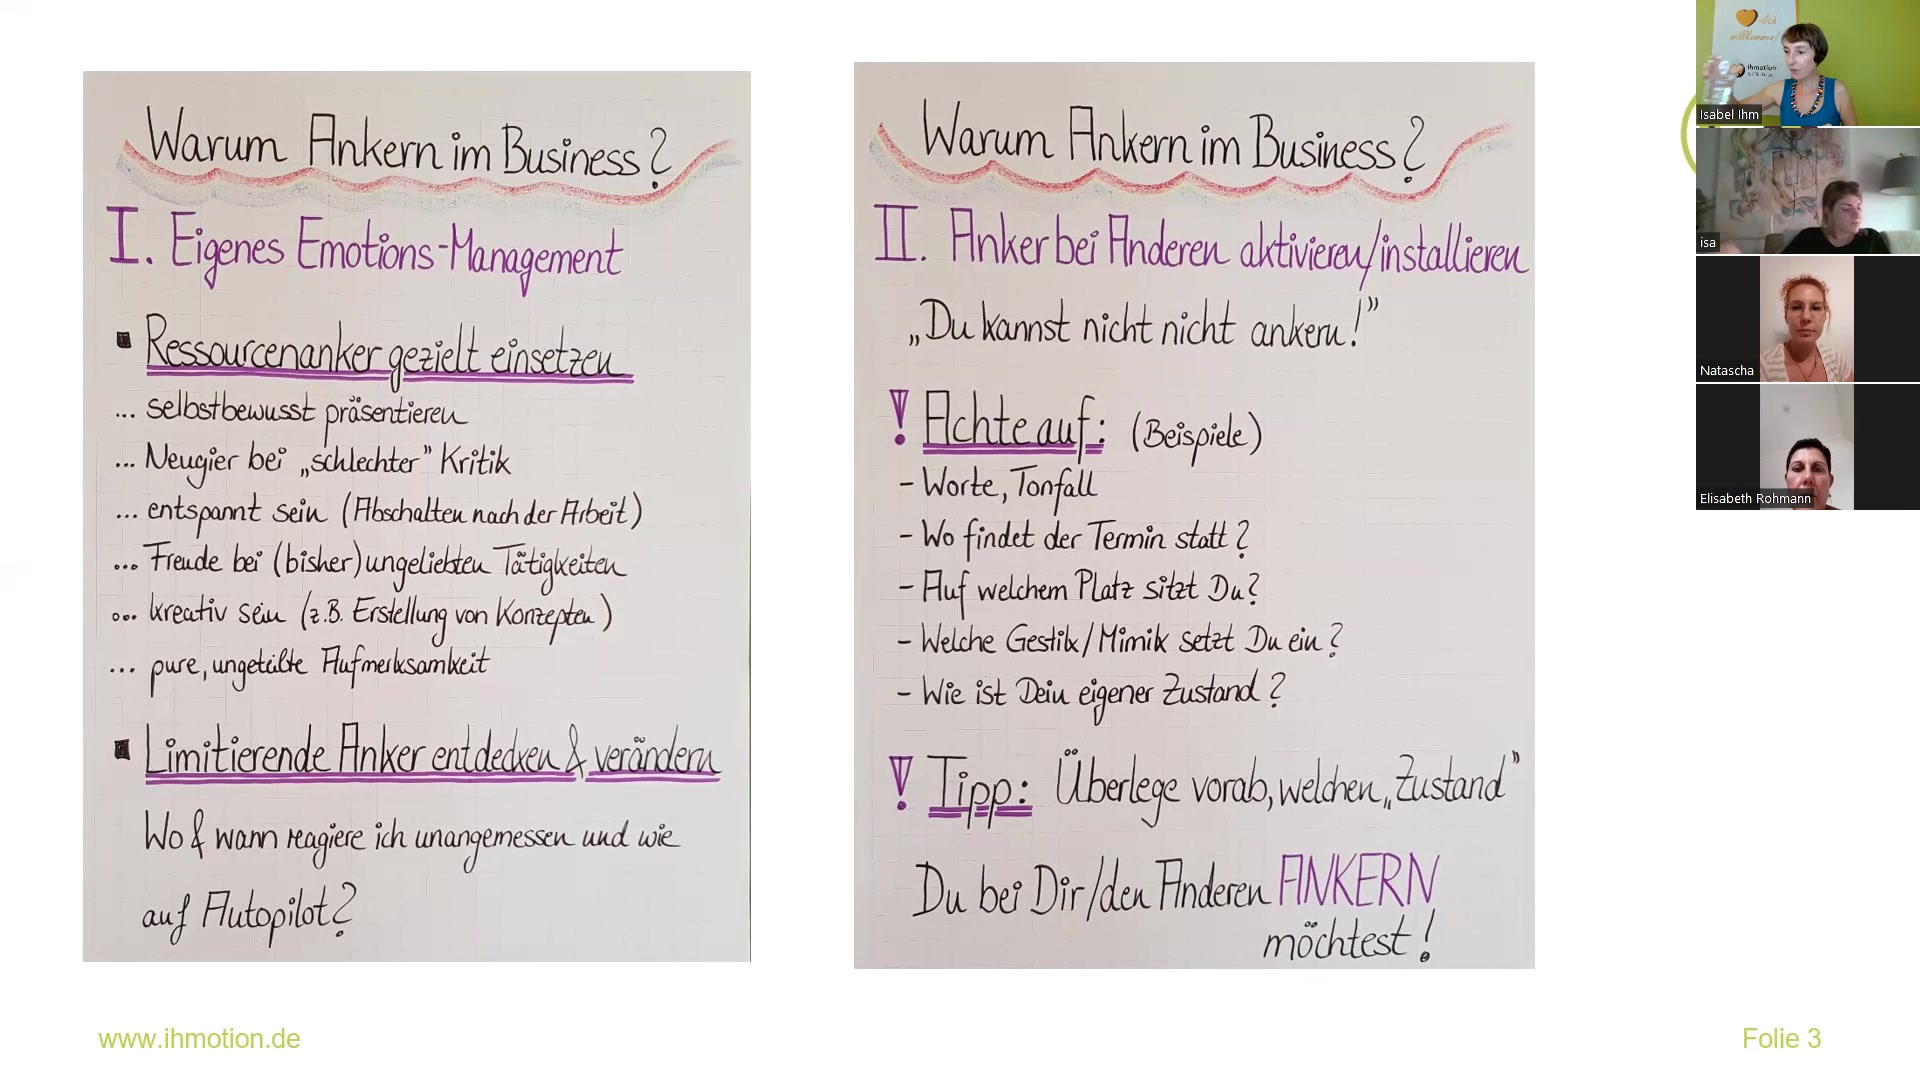 Warum Ankern im Business?
I. Eigenes Emotions-Management
Ressourcenanker gezielt einsetzen
... selbstbewusst präsentieren
... Neugier bei „schlechter" Kritik
... entspannt sein (Abschalten nach der Arbeit)
... Freude bei (bisher) ungeliebten Tätigkeiten
... kreativ sein (z.B. Erstellung von Konzepten)
... pure, ungeteilte Aufmerksamkeit
Limitierende Anker entdecken & verändern
Wo & wann reagiere ich unangemessen und wie
auf Autopilot?
Warum Ankern im Business?
II. Anker bei Anderen aktivieren/installieren
„Du kannst nicht nicht ankern!"
! Achte auf: (Beispiele)
- Worte, Tonfall
- Wo findet der Termin statt?
- Auf welchem Platz sitzt Du?
- Welche Gestik/Mimik setzt Du ein?
- Wie ist Dein eigener Zustand?
! Tipp: Überlege vorab, welchen „Zustand"
Du bei Dir/den Anderen ANKERN
möchtest!
-lich
willkommen!
ihmotion
Isabel Ihm
isa
Natascha
Elisabeth Rohmann
www.ihmotion.de
Folie 3